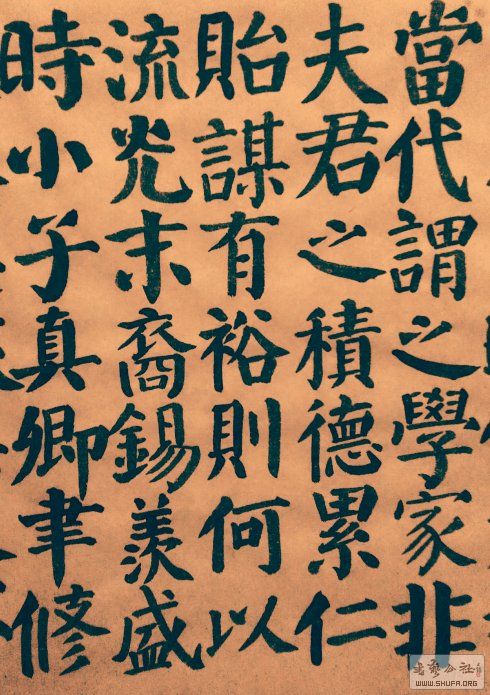 當代謂之學家非
夫君之積德累仁
貽謀有裕則何以
流光末裔錫羨盛
時小子真卿聿修
書藝公社
WWW.SHUFA.ORG